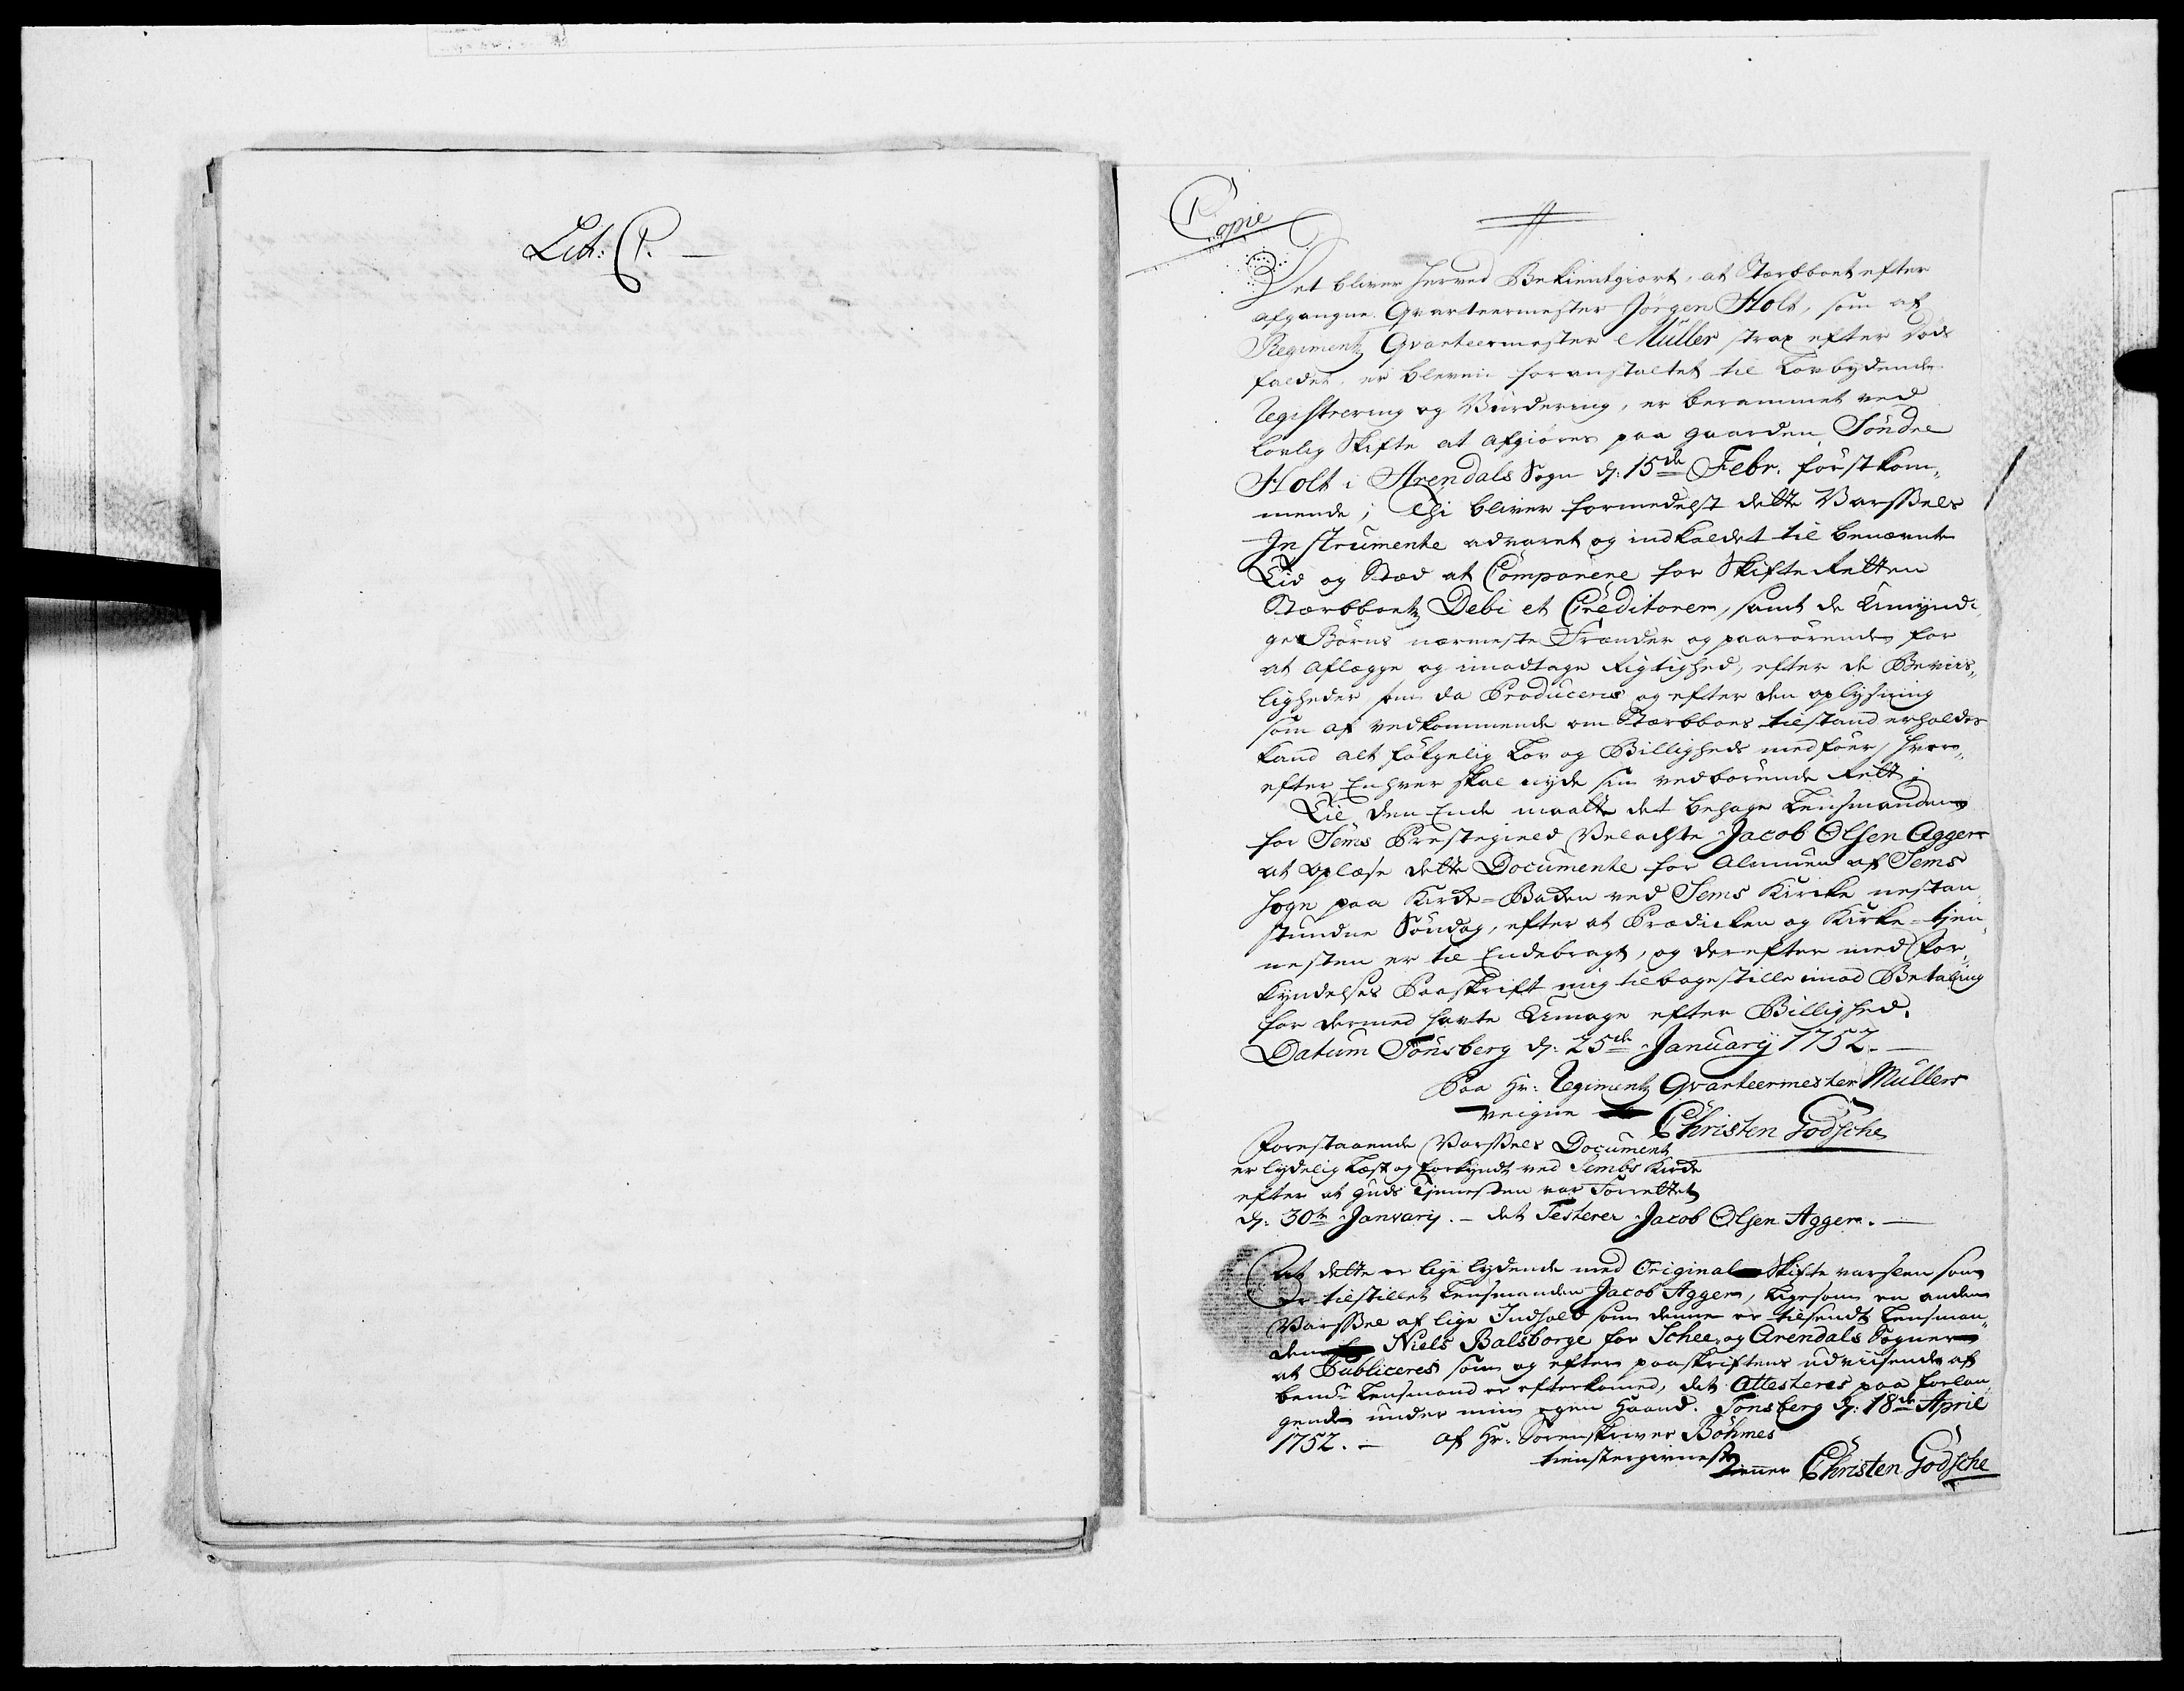 Lit: C. —
Copie
Det bliver herved Bekientgiort, at Stærbboet efter
afgangne Qvarteermester Jörgen Holt, som af
Regimentz Qvarteermester Müller strax efter Döds
faldet, er bleven foranstaltet til Lovbydende
Registrering og Vurdering, er berammet ved
lovlig Skifte at afgiöres paa gaarden Söndre
Holt i Arendals Sogn d: 15de Febr. förstkom„
mende; Thi bliver formedelst dette Varssels
Instrumente advaret og indkaldet til benævnte
Tid og Stæd at Comparere for Skifte Retten
Stærbboetz Debi et Creditorer, samt de Umyndi„
ges Börns nærmeste Frænder og paarörende for
at aflægge og imodtage Rigtighed, efter de Beviis„
ligheder som da Produceres og efter den oplysning
som af vedkommende om Stærbboes tilstand erholdes
kand alt fölgelig Lov og Billigheds medföer, hvor„
efter Enhver skal nyde sin vedbörende Rett;
Til den Ende maatte det behage Lensmanden
for Sems Prestegield Velachte Jacob Olsen Agger
at oplæse dette Documente for Almuen af Sems
Sogn paa Kirke-Bakken ved Sems Kircke nestan„
stundne Söndag, efter at Prædicken og Kirke-tjen„
nesten er til Endebragt, og derefter med for„
kyndelses Paaskrift mig tilbagestille imod Betaling
for dermed havte Umage efter Billighed.
Datum Tönsberg d: 25de January 1752. —
Paa Hr: Regimentz Qvarteermester Müllers
veigne Christen Godsche
Forestaaende Varssels Document
er lydelig læst og forkyndt ved Sembs Kirke
efter at Guds Tjenesten var Forrettet
d: 30te January. — det Testerer Jacob Olsen Aggern. —
At dette er lige lydende med Original Skifte varselen som
er tilstillet Lensmanden Jacob Aggern, ligesom en anden
Varssel af lige Indhold som denne er tilsendt Lensman„
den Niels Balsborge for Schee, og Arendals Sogner
at Publiceres som og efter paaskriftens udviisende af
bemte Lensmand er efterkomed, det Attesteres paa forlan„
gende under min egen Haand. Tönsberg d: 18de April
1752. — af Hr: Sorenskriver Böhmes
tienstergivneste
Tienner Christen Godsche